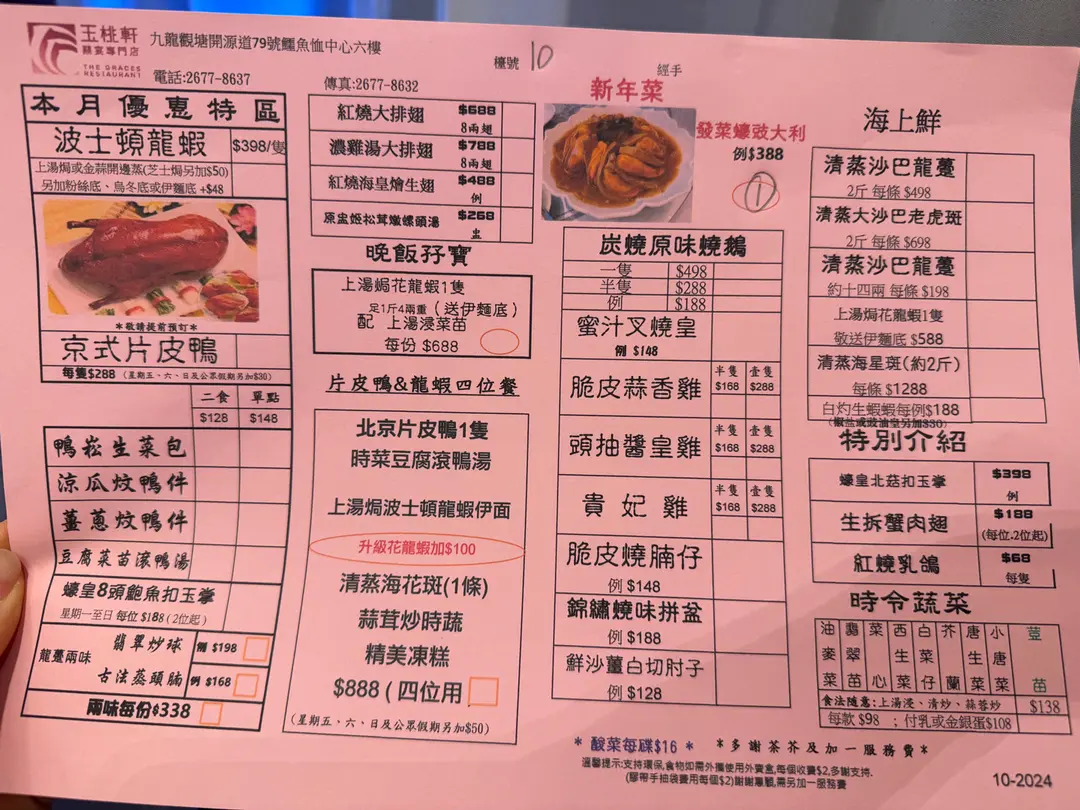 玉桃軒
囍宴專門店
THE GRACES
RESTAURANT
九龍觀塘開源道79號鱷魚恤中心六樓
電話:2677-8637
傳真:2677-8632
檯號 10
經手
本月優惠特區
波士頓龍蝦 $398/隻
上湯焗或金蒜開邊蒸(芝士焗另加$50)
另加粉絲底、烏冬底或伊麵底 +$48
*敬請提前預訂*
京式片皮鴨
每隻$288 (星期五、六、日及公眾假期另加$30)
二食 單點
$128 $148
鴨崧生菜包
涼瓜炆鴨件
薑蔥炆鴨件
豆腐菜苗滾鴨湯
蠔皇8頭鮑魚扣玉掌
星期一至日 每位 $188 (2位起)
龍躉兩味
翡翠炒球 例 $198
古法蒸頭腩 例 $168
兩味每份$338
紅燒大排翅 $688
8兩翅
濃雞湯大排翅 $788
8兩翅
紅燒海皇燴生翅 $488
例
原盅姬松茸燉螺頭湯 $268
盅
晚飯孖寶
上湯焗花龍蝦1隻
足1斤4兩重(送伊麵底)
配 上湯浸菜苗
每份 $688
片皮鴨&龍蝦四位餐
北京片皮鴨1隻
時菜豆腐滾鴨湯
上湯焗波士頓龍蝦伊面
升級花龍蝦加$100
清蒸海花斑(1條)
蒜茸炒時蔬
精美凍糕
$888 (四位用
(星期五、六、日及公眾假期另加$50)
新年菜
發菜蠔豉大利
例$388
1
炭燒原味燒鵝
一隻 $498
半隻 $288
例 $188
蜜汁叉燒皇
例 $148
脆皮蒜香雞 半隻 壹隻
$168 $288
頭抽醬皇雞 半隻 壹隻
$168 $288
貴妃雞 半隻 壹隻
$168 $288
脆皮燒腩仔
例 $148
錦繡燒味拼盆
例 $188
鮮沙薑白切肘子
例 $128
海上鮮
清蒸沙巴龍躉
2斤 每條 $498
清蒸大沙巴老虎斑
2斤 每條 $698
清蒸沙巴龍躉
約十四兩 每條 $198
上湯焗花龍蝦1隻
敬送伊麵底 $588
清蒸海星斑(約2斤)
每條 $1288
白灼生蝦蝦每例$188
(椒鹽或豉油皇另加$30)
特別介紹
蠔皇北菇扣玉掌 $398
例
生拆蟹肉翅 $188
(每位.2位起)
紅燒乳鴿 $68
每隻
時令蔬菜
油麥菜 翡翠苗 菜心 西生菜 白菜仔 芥蘭 唐生菜 小唐菜 荳苗
食法隨意:上湯浸、清炒、蒜蓉炒 $138
每款 $98 ;付乳或金銀蛋$108
* 酸菜每碟$16 * *多謝茶芥及加一服務費*
溫馨提示:支持環保,食物如需外攜使用外賣盒,每個收費$2,多謝支持.
(膠帶手抽袋費用每個$2)謝謝惠顧,需另加一服務費
10-2024